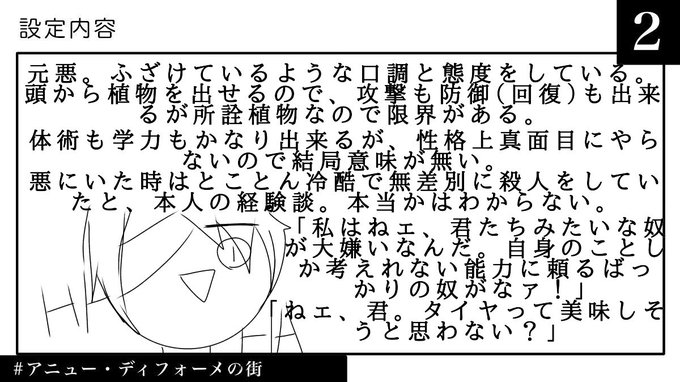 設定内容
2
元悪。ふざけているような口調と態度をしている。
頭から植物を出せるので、攻撃も防御(回復)も出来
るが所詮植物なので限界がある。
体術も学力もかなり出来るが、性格上真面目にやら
ないので結局意味が無い。
悪にいた時はとことん冷酷で無差別に殺人をしてい
たと、本人の経験談。本当かはわからない。
「私はねェ、君たちみたいな奴
が大嫌いなんだ。自身のことし
か考えれない能力に頼るばっ
かりの奴がなァ！」
「ねェ、君。タイヤって美味しそ
うと思わない？」
HA
HA
#アニュー・ディフォーメの街